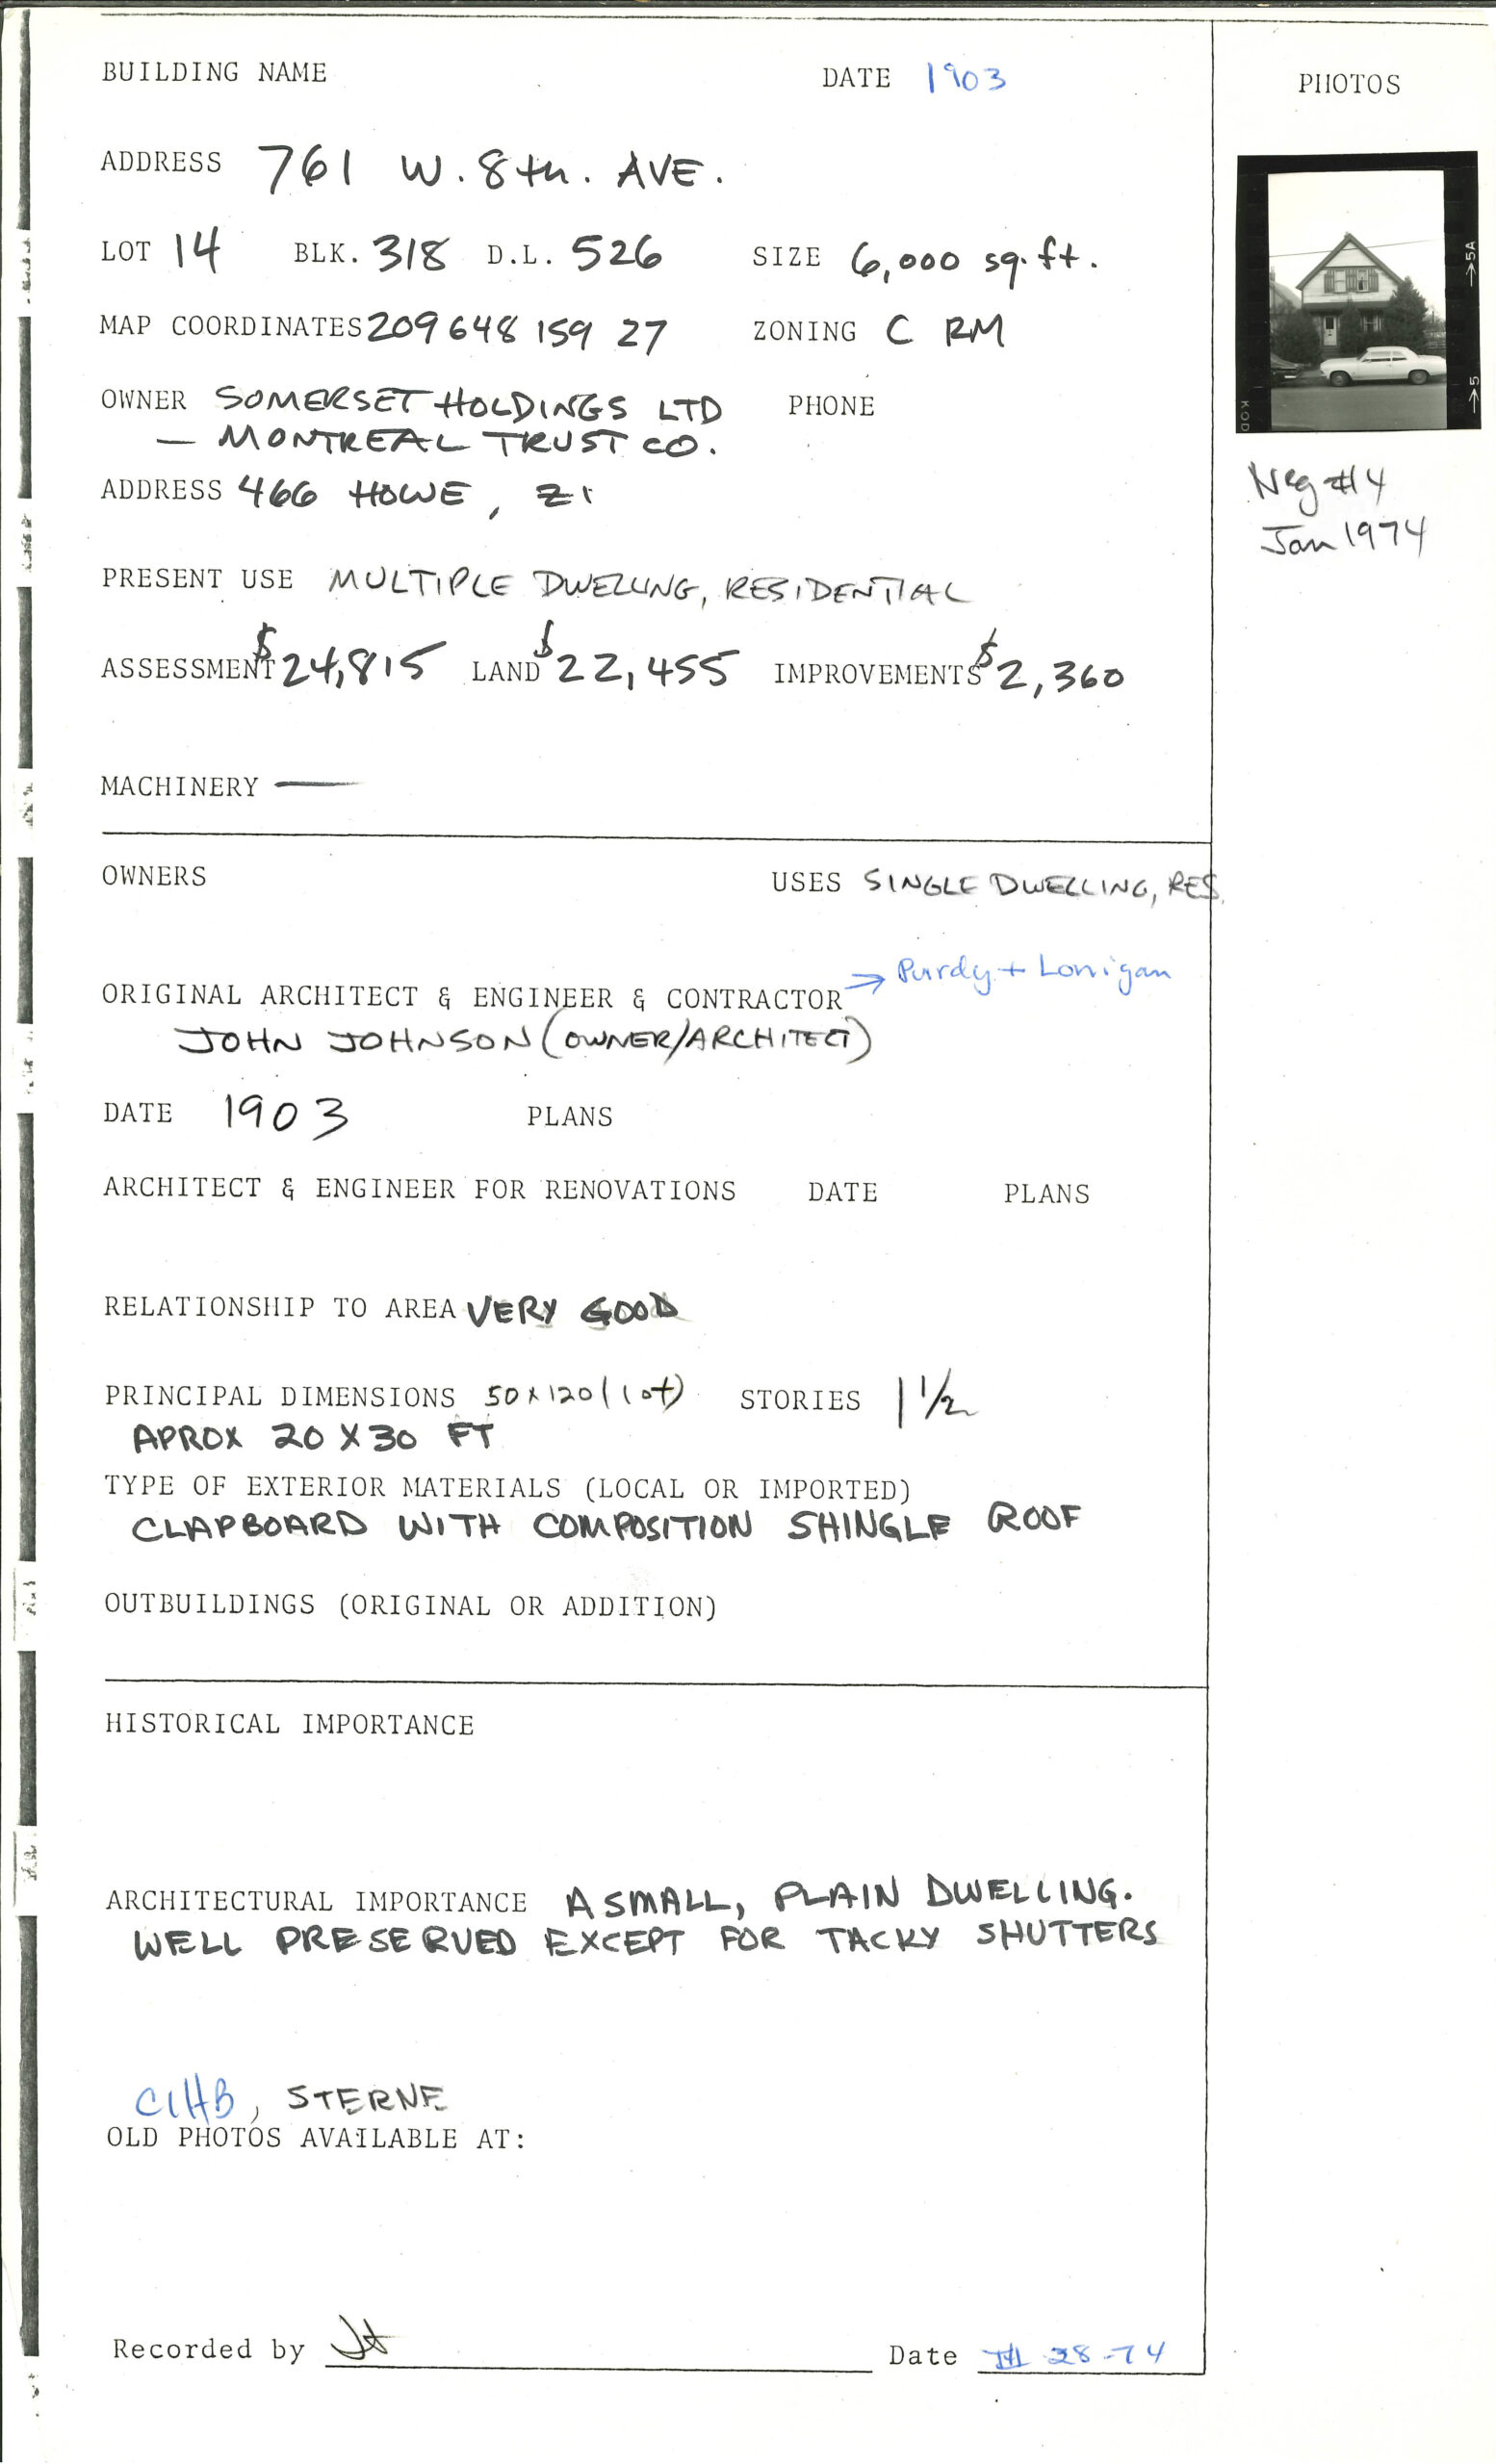 BUILDING NAME DATE 1903
PHOTOS
ADDRESS 761 W. 8th. AVE.
LOT 14 BLK. 318 D.L. 526 SIZE 6,000 sq. ft.
MAP COORDINATES 209 648 159 27 ZONING C RM
OWNER SOMERSET HOLDINGS LTD PHONE
— MONTREAL TRUST CO.
ADDRESS 466 HOWE, Z1
PRESENT USE MULTIPLE DWELLING, RESIDENTIAL
ASSESSMENT $24,815 LAND $22,455 IMPROVEMENTS $2,360
MACHINERY —
→5A
→5
KOD
Neg #4
Jan 1974
OWNERS USES SINGLE DWELLING, RES.
→ Purdy + Lonigan
ORIGINAL ARCHITECT & ENGINEER & CONTRACTOR
JOHN JOHNSON (OWNER/ARCHITECT)
DATE 1903 PLANS
ARCHITECT & ENGINEER FOR RENOVATIONS DATE PLANS
RELATIONSHIP TO AREA VERY GOOD
PRINCIPAL DIMENSIONS 50x120 (lot) STORIES 1 1/2
APROX 20 X 30 FT
TYPE OF EXTERIOR MATERIALS (LOCAL OR IMPORTED)
CLAPBOARD WITH COMPOSITION SHINGLE ROOF
OUTBUILDINGS (ORIGINAL OR ADDITION)
HISTORICAL IMPORTANCE
ARCHITECTURAL IMPORTANCE A SMALL, PLAIN DWELLING.
WELL PRESERVED EXCEPT FOR TACKY SHUTTERS
CIHB, STERNE
OLD PHOTOS AVAILABLE AT:
Recorded by Date 28-74